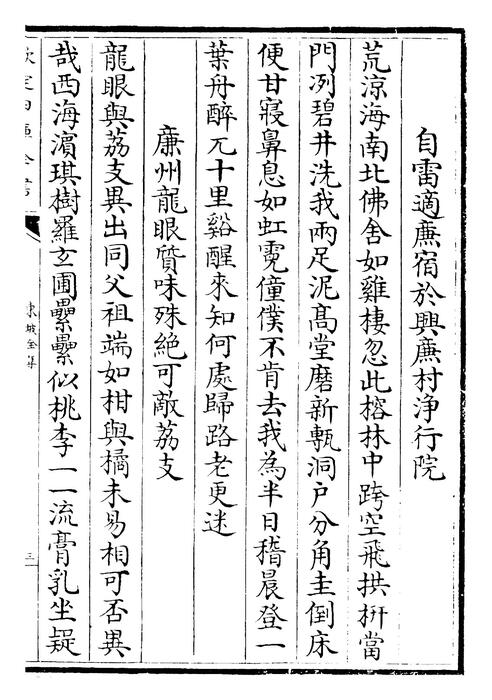 自雷適廉宿於興廉村浄行院
荒涼海南北佛舍如雞棲忽此榕林中跨空飛拱枅當
門冽碧井洗我兩足泥髙堂磨新甎洞戶分角圭倒床
便甘寢鼻息如虹霓僮僕不肯去我為半日稽晨登一
葉舟醉兀十里谿醒來知何處歸路老更迷
廉州龍眼質味殊絶可敵荔支
龍眼與荔支異出同父祖端如柑與橘未易相可否異
哉西海濵琪樹羅玄圃纍纍似桃李一一流膏乳坐疑
東坡全集
三